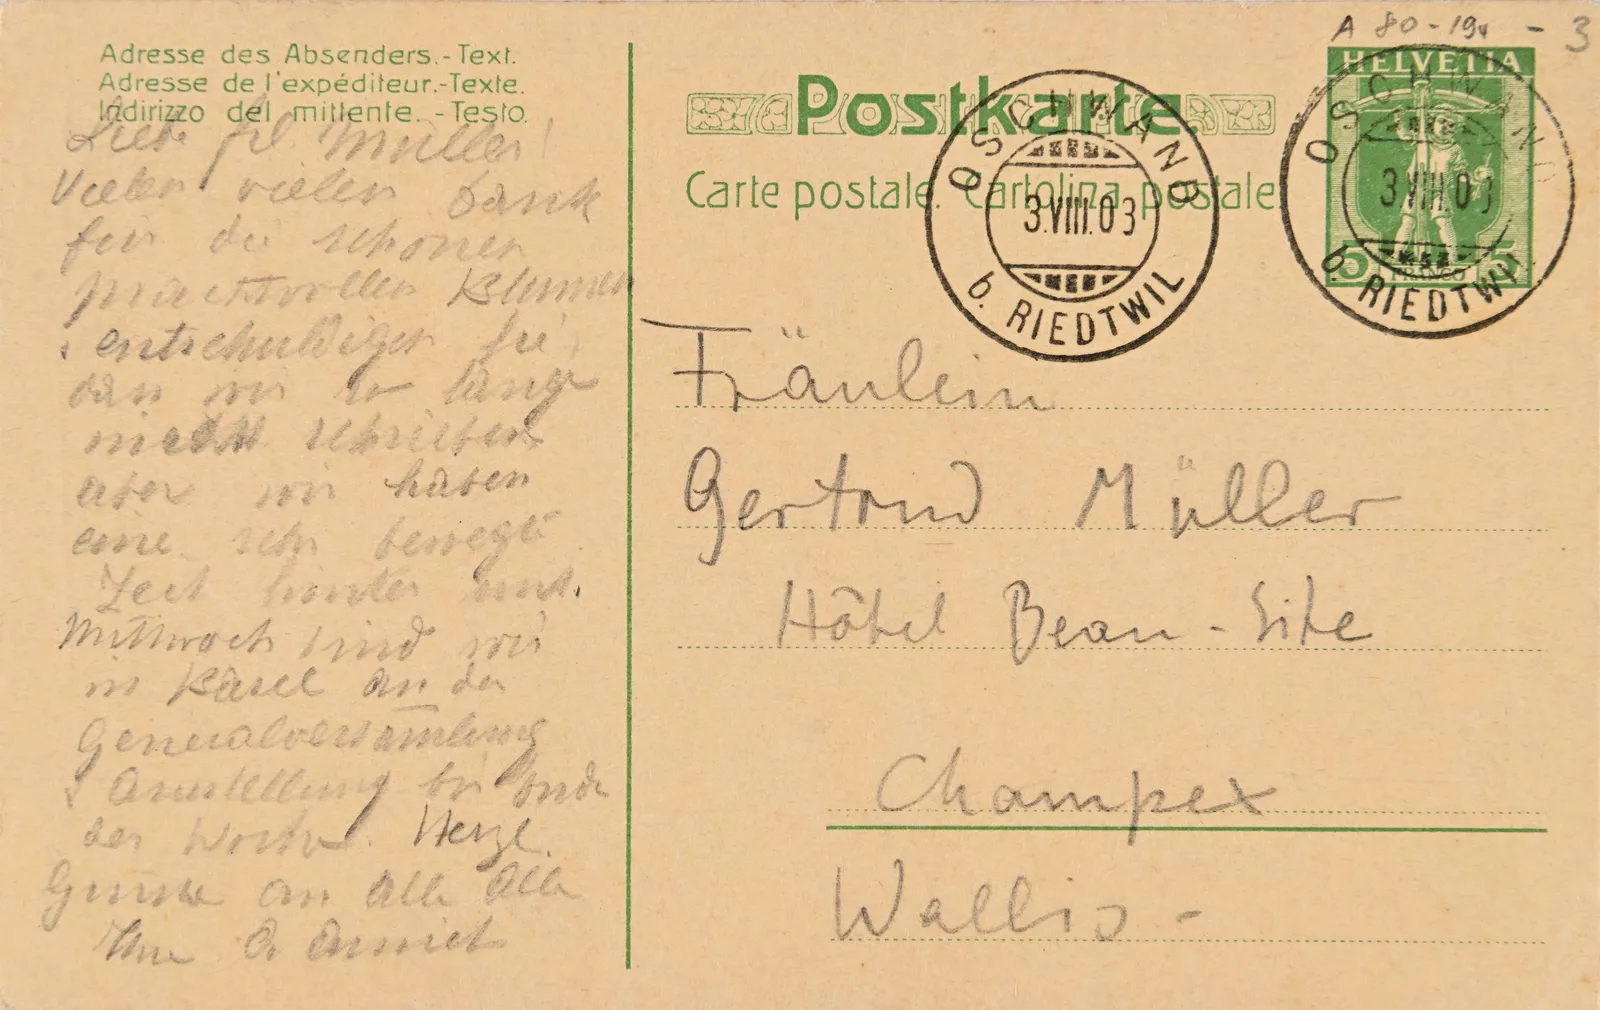 A 80-194 - 3
Adresse des Absenders.-Text.
Adresse de l'expéditeur.-Texte.
Indirizzo del mittente.-Testo.
Liebe frl Müller!
Vielen vielen Dank
für die schönen
prachtvollen Blumen
entschuldigen sie,
dan wir so lange
nicht schrieben
aber wir haben
eine sehr bewegte
Zeit hinter uns.
Mittwoch sind wir
in Basel an der
Generalversamlung
& Ausstellung bis Ende
der Woche. Herzl.
Grüsse an alle alle
Ihre A Amiet
Postkarte.
Carte postale. Cartolina postale
OSCHWAND
3.VIII.03
b. RIEDTWIL
HELVETIA
5 FRANCO 5
OSCHWAND
3.VIII.03
b. RIEDTWIL
Fräulein
Gertrud Müller
Hôtel Beau-Site
Champex
Wallis-